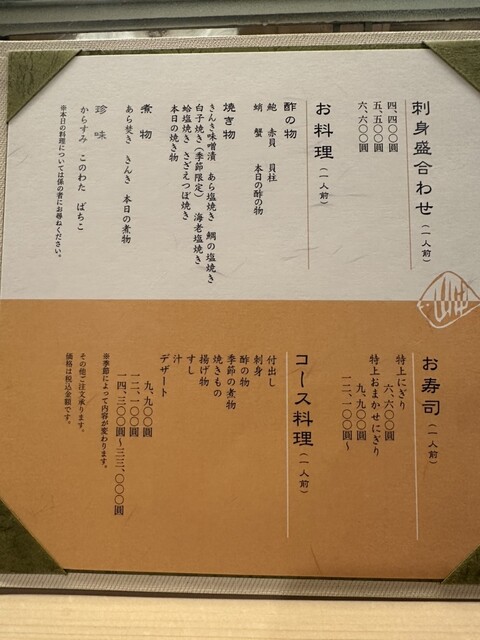 刺身盛合わせ(一人前)
四、四〇〇圓
五、五〇〇圓
六、六〇〇圓
お料理(一人前)
酢の物
鮑 赤貝 貝柱
蛸 蟹 本日の酢の物
焼き物
きんき味噌漬 あら塩焼き 鯛の塩焼き
白子焼き(季節限定) 海老塩焼き
蛤塩焼き さざえつぼ焼き
本日の焼き物
煮物
あら焚き きんき 本日の煮物
珍味
からすみ このわた ばちこ
※本日の料理については係の者にお尋ねください。
お寿司(一人前)
特上にぎり
六、六〇〇圓
特上おまかせにぎり
九、九〇〇圓
一二、一〇〇圓〜
コース料理(一人前)
付出し
刺身
酢の物
季節の煮物
焼きもの
揚げ物
すし
汁
デザート
九、九〇〇圓
一二、一〇〇圓
一四、三〇〇圓〜三三、〇〇〇圓
※季節によって内容が変わります。
その他ご注文承ります。
価格は税込金額です。